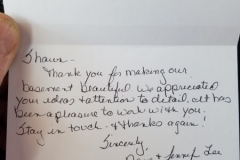 Shawn-
Thank you for making our
basement beautiful. We appreciated
your ideas & attention to detail. It has
been a pleasure to work with you.
Stay in touch. & thanks again!
Sincerely,
& Jennif Lee